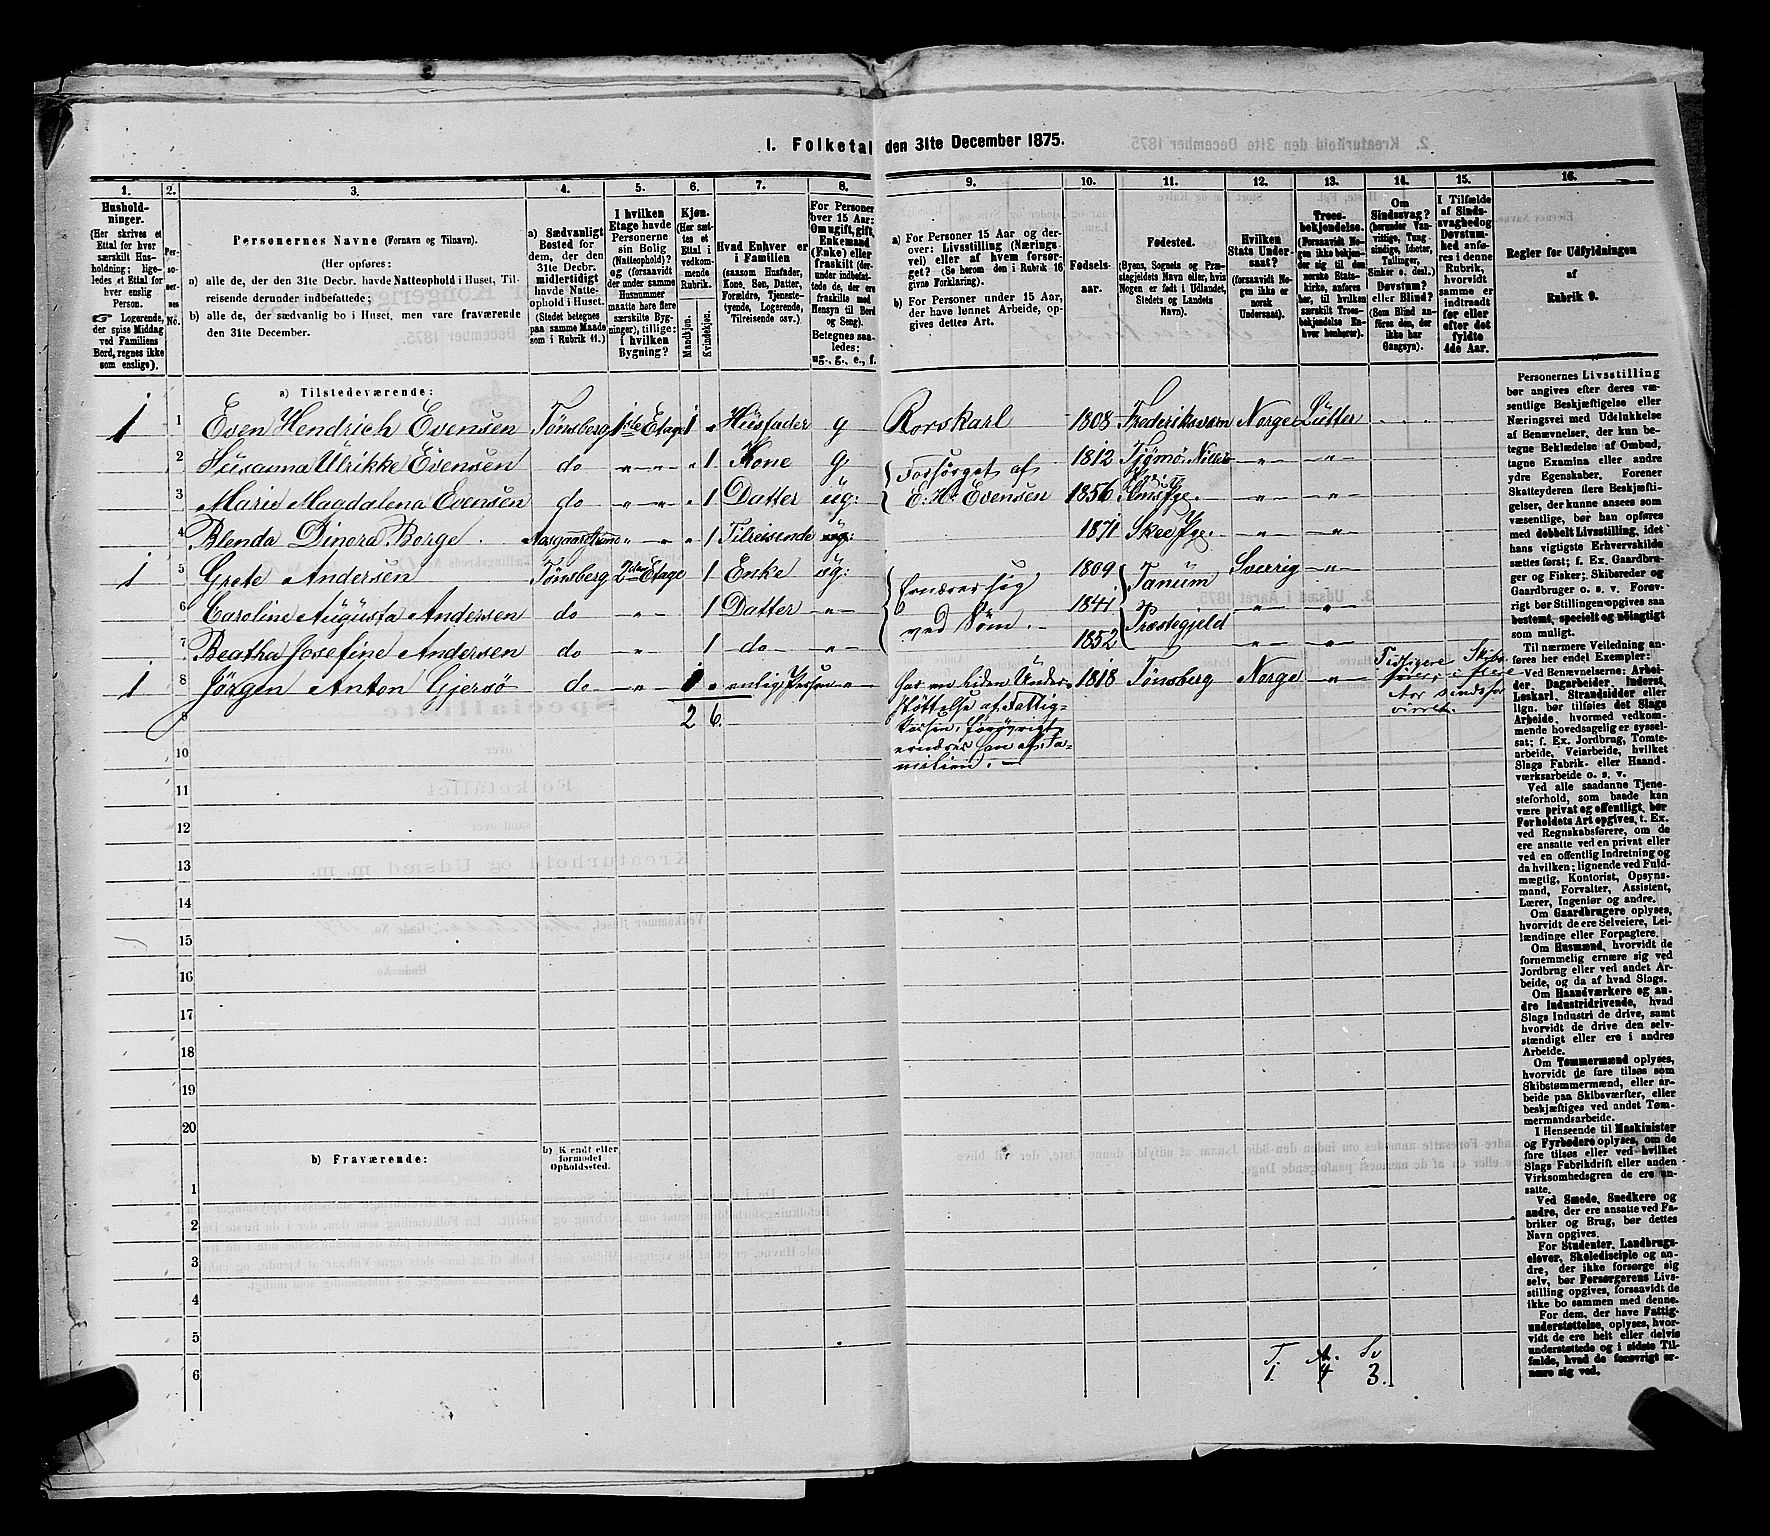 I. Folketal den 31te December 1875.
1. 2. 3. 4. 5. 6. 7. 8. 9. 10. 11. 12. 13. 14. 15. 16.
Hushold-
ninger.
(Her skrives et
Ettal for hver
særskilt Hus-
holdning; lige-
ledes et Ettal for
hver enslig
Person.
☞ Logerende,
der spise Middag
ved Familiens
Bord, regnes ikke
som enslige).
Per-
so-
ner-
nes
No.
Personernes Navne (Fornavn og Tilnavn).
(Her opføres:
a) alle de, der den 31te Decbr. havde Natteophold i Huset, Til-
reisende derunder indbefattede;
b) alle de, der sædvanlig bo i Huset, men vare fraværende
den 31te December.
a) Sædvanligt
Bosted for
dem, der den
31te Decbr.
midlertidigt
havde Natte-
ophold i Huset.
(Stedet betegnes
paa samme Maade
som i Rubrik 11.)
I hvilken
Etage havde
Personerne
sin Bolig
(Natteophold)?
og (forsaavidt
der under samme
Husnummer
maatte høre flere
særskilte Byg-
ninger), tillige:
i hvilken
Bygning?
Kjøn.
(Her sæt-
tes et
Ettal i
vedkom-
mende
Rubrik.
Mandkjøn.
Kvindekjøn.
Hvad Enhver er
i Familien
(saasom Husfader,
Kone, Søn, Datter,
Forældre, Tjeneste-
tyende, Logerende,
Tilreisende osv.).
For Personer
over 15 Aar:
Om ugift, gift,
Enkemand
(Enke) eller
fraskilt (der-
under indbefat-
tede de, der ere
fraskilte med
Hensyn til Bord
og Seng).
Betegnes saa-
ledes:
ug., g., e., f.
a) For Personer 15 Aar og der-
over: Livsstilling (Nærings-
vei) eller af hvem forsør-
get? (Se herom den i Rubrik 16
givne Forklaring).
b) For Personer under 15 Aar,
der have lønnet Arbeide, op-
gives dettes Art.
Fødsels-
aar.
Fødested.
(Byens, Sognets og Præ-
stegjeldets Navn eller, hvis
Nogen er født i Udlandet,
Stedets og Landets
Navn).
Hvilken
Stats Under-
saat?
(forsaavidt No-
gen ikke er
norsk
Undersaat).
Troes-
bekjendelse.
(Forsaavidt No-
gen ikke bekjen-
der sig til den
norske Stats-
kirke, anføres
her, til hvilket
særskilt Troes-
bekjendelse En-
hver henhører).
Om
Sindssvag?
(herunder Van-
vittige, Tung-
sindige, Idioter,
Tullinger,
Sinker o. desl.)
Døvstum?
eller Blind?
(Som Blind an-
føres den, der
ikke har
Gangsyn).
I Tilfælde
af Sinds-
svaghed og
Døvstum-
hed anfø-
res i denne
Rubrik,
hvorvidt
samme er
indtraadt
før eller
efter det
fyldte
4de Aar.
Regler for Udfyldningen
af
Rubrik 9.
a) Tilstedeværende:
1 1 Even Hendrich Evensen Tønsberg 1ste Etage 1 „ Husfader g Rorskarl 1808 Frederiksværn Norge Luther
2 Susanna Ulrikke Evensen do „ „ „ 1 Kone g Forsørget af 1812 Tjømø „ „
3 Marie Magdalena Evensen do „ „ „ 1 Datter ug: E. H. Evensen 1856 „ „
4 Blenda Dinora Borge „ „ 1 Tilreisende ug: 1871 „ „
1 5 Grete Andersen Tønsberg 2den Etage 1 Enke 1809 Tanum Sverrig „
6 Caroline Augusta Andersen do „ 1 Datter „ Ernærer sig 1841 „ „
7 Beatha Josefine Andersen do „ 1 do „ ved Søm. 1852 Præstegjeld „ „
1 8 Jørgen Anton Gjersø do „ 1 „ enlig Person „ har en liden Under- 1818 Tønsberg Norge „ Tidligere Skibs-
støttelse af Fattig-
kassen, forøvrigt
ernæres han af Fa-
milien.
9 2 6
10
11
12
13
14
15
16
17
18
19
20
b) Fraværende:
b) Kendt eller
formodet
Opholdssted.
1
2
3
4
5
6
T. A. Sv
1. 4 3.
Personernes Livsstilling
bør angives efter deres væ-
sentlige Beskjæftigelse eller
Næringsvei med Udelukkelse
af Benævnelser, der kun be-
tegne Bekledelse af Ombud,
tagne Examina eller andre
ydre Egenskaber. Forener
Skatteyderen flere Beskjæfti-
gelser, der kunne ansees som
væsentlige, bør han opføres
med dobbelt Livsstilling, idet
hans vigtigste Erhvervskilde
sættes først; f. Ex. Gaardbru-
ger og Fisker; Skibsreder og
Gaardbruger o. s. v. Forøv-
rigt bør Stillingen opgives saa
bestemt, specielt og nøiagtigt
som muligt.
Til nærmere Veiledning an-
føres her endel Exempler:
Ved Benævnelserne: Arbei-
der, Dagarbeider, Inderst,
Løskarl, Strandsidder eller
lign. bør tilføies det Slags
Arbeide, hvormed vedkom-
mende hovedsagelig er syssel-
sat; f. Ex. Jordbrug, Tomte-
arbeide, Veiarbeide, hvilket
Slags Fabrik- eller Haand-
værksarbeide o. s. v.
Ved alle saadanne Tjene-
steforhold, som baade kan
være privat og offentligt, bør
Forholdets Art opgives, t. Ex.
ved Regnskabsførere, om de
ere ansatte ved en privat eller
ved en offentlig Indretning og
da hvilken; lignende ved Fuld-
mægtig, Kontorist, Opsyns-
mand, Forvalter, Assistent,
Lærer, Ingeniør og andre.
Om Gaardbrugere oplyses,
hvorvidt de ere Selveiere, Lei-
lændinge eller Forpagtere.
Om Husmænd, hvorvidt de
fornemmelig ernære sig ved
Jordbrug eller ved andet Ar-
beide, og da af hvad Slags.
Om Haandværkere og an-
dre Industridrivende, hvad
Slags Industri de drive, samt
hvorvidt de drive den selv-
stændigt eller ere i andres
Arbeide.
Om Tømmermænd oplyses,
hvorvidt de fare tilsøs som
Skibstømmermænd, eller ar-
beide paa Skibsværfter, eller
beskjæftiges ved andet Tøm-
mermandsarbeide.
I Henseende til Maskinister
og Fyrbødere oplyses, om de
fare tilsøs eller ved hvilket
Slags Fabrikdrift eller anden
Virksomhedsgren de ere an-
satte.
Ved Smede, Snedkere og
andre, der ere ansatte ved Fa-
briker og Brug, bør dettes
Navn opgives.
For Studenter, Landbrugs-
elever, Skoledisciple og an-
dre, der ikke forsørge sig
selv, bør Forsørgerens Livs-
stilling opgives, forsaavidt de
ikke bo sammen med denne.
For dem, der have Fattig-
understøttelse, oplyses, hvor-
vidt de ere helt eller delvis
understøttede og i sidste Til-
fælde, hvad de forøvrigt er-
nære sig ved.